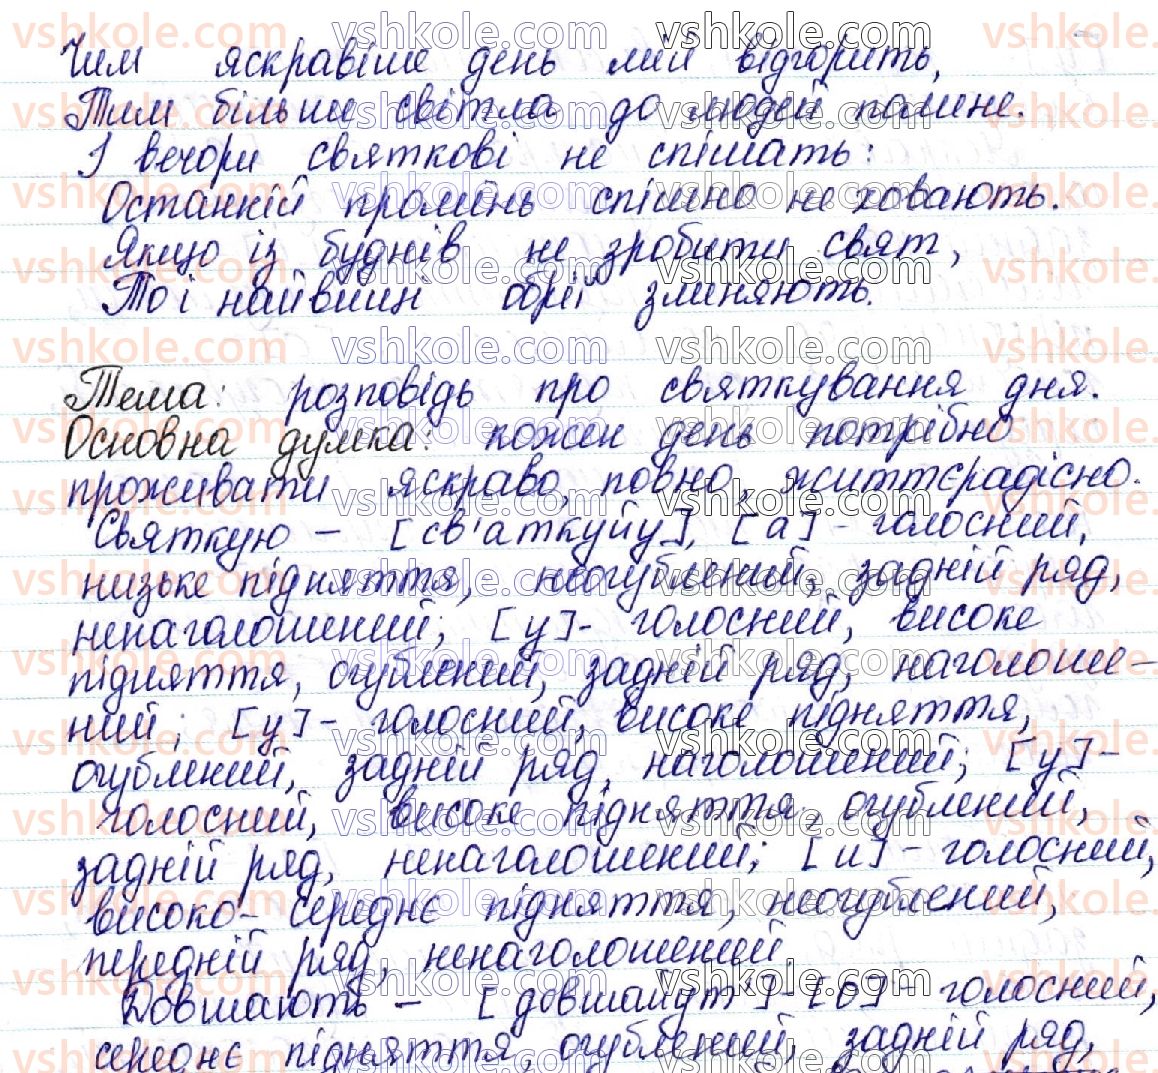 Чим яскравіше день мій відгорить,
Тим більше світла до людей полине.
І вечори святкові не спішать:
Останній промінь спішно не ховають.
Якщо із буднів не зробити свят,
То і найвищі обрії зминяють.
Тема: розповідь про святкування дня.
Основна думка: кожен день потрібно
проживати яскраво, повно, життєрадісно.
Святкую – [св'аткуйу], [а] - голосний,
низьке підняття, неогублений, задній ряд,
ненаголошений; [у] - голосний, високе
підняття, огублений, задній ряд, наголоше-
ний; [у] - голосний, високе підняття,
огублений, задній ряд, наголошений; [у] -
голосний, високе підняття, огублений,
задній ряд, ненаголошений; [и] - голосний,
високо-середнє підняття, неогублений,
передній ряд, ненаголошений.
Довшають – [довшайут'] - [о] - голосний,
середнє підняття, огублений, задній ряд,
vshkole.com